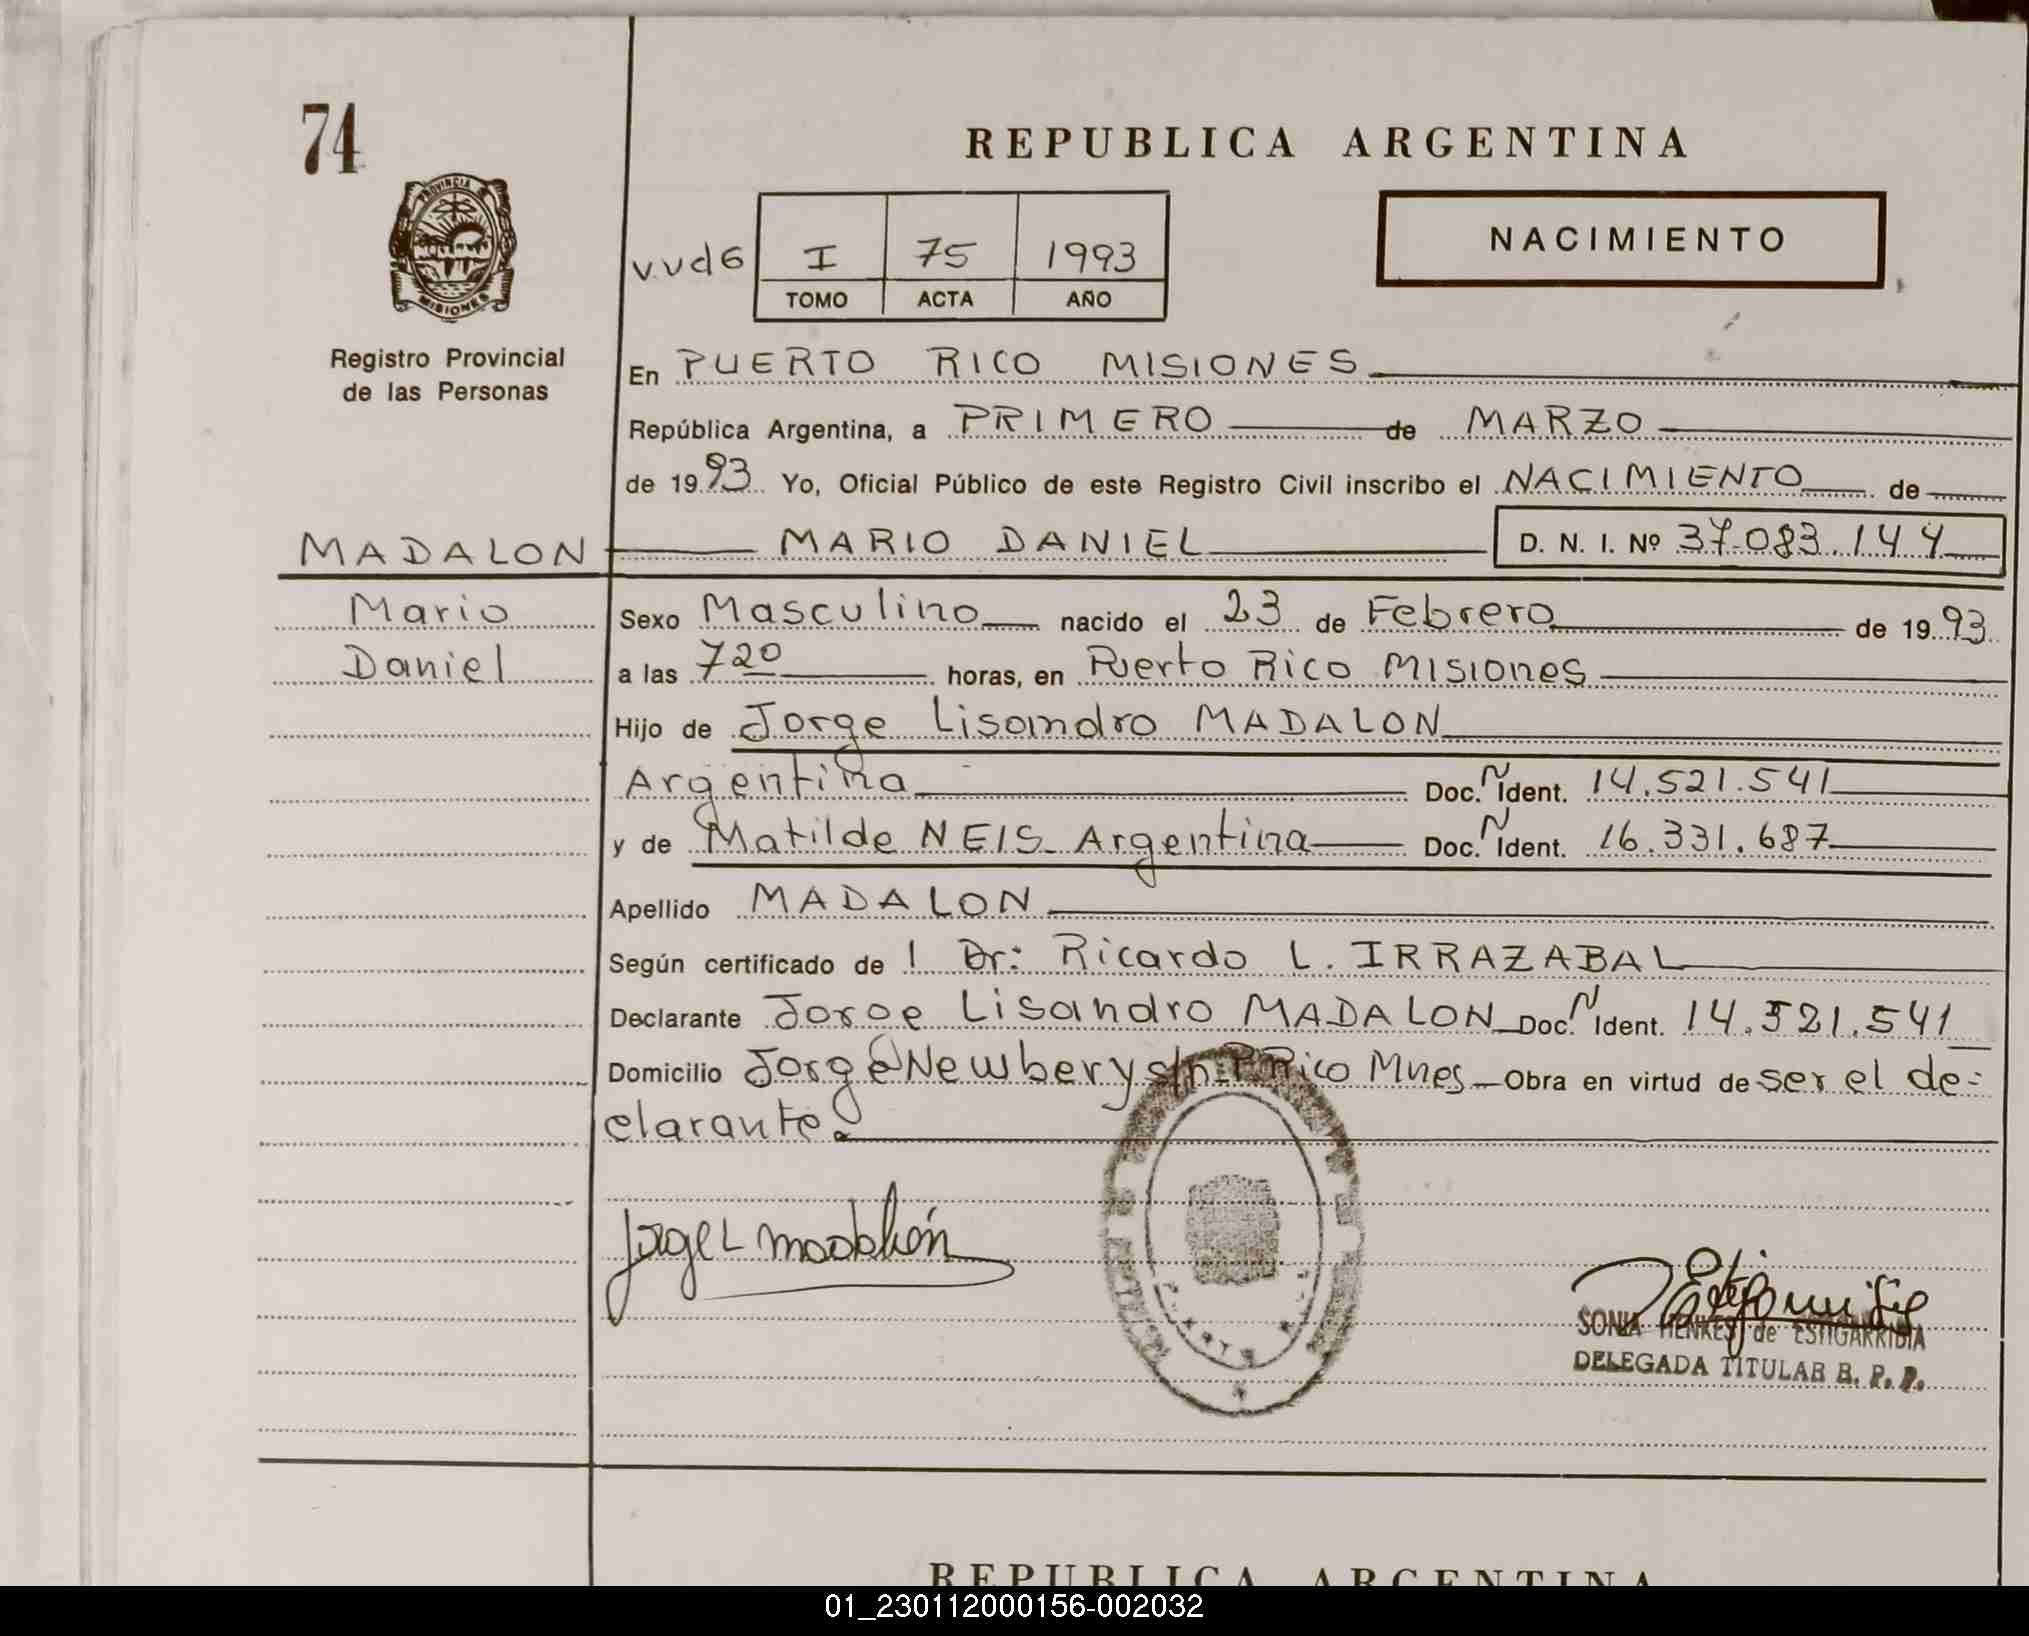 74
REPUBLICA ARGENTINA
PROVINCIA DE
MISIONES
NACIMIENTO
v.vd6 I 75 1993
TOMO ACTA AÑO
Registro Provincial
de las Personas
En PUERTO RICO MISIONES
República Argentina, a PRIMERO de MARZO
de 1993 Yo, Oficial Público de este Registro Civil inscribo el NACIMIENTO de
MADALON MARIO DANIEL D. N. I. Nº 37.083.144
Mario
Daniel
Sexo Masculino nacido el 23 de Febrero de 1993
a las 7 20 horas, en Puerto Rico Misiones
Hijo de Jorge Lisandro MADALON
Argentina Doc. N Ident. 14.521.541
y de Matilde NEIS Argentina Doc. N Ident. 16.331.687
Apellido MADALON
Según certificado de l Dr: Ricardo L. IRRAZABAL
Declarante Jorge Lisandro MADALON Doc. N Ident. 14.521.541
Domicilio Jorge Newbery s/n P Rico Mnes Obra en virtud de ser el de-
clarante.
Jorge L madalón
SONIA HENKES de ESTIGARRIBIA
DELEGADA TITULAR R. P. P.
REPUBLICA ARGENTINA
01_230112000156-002032